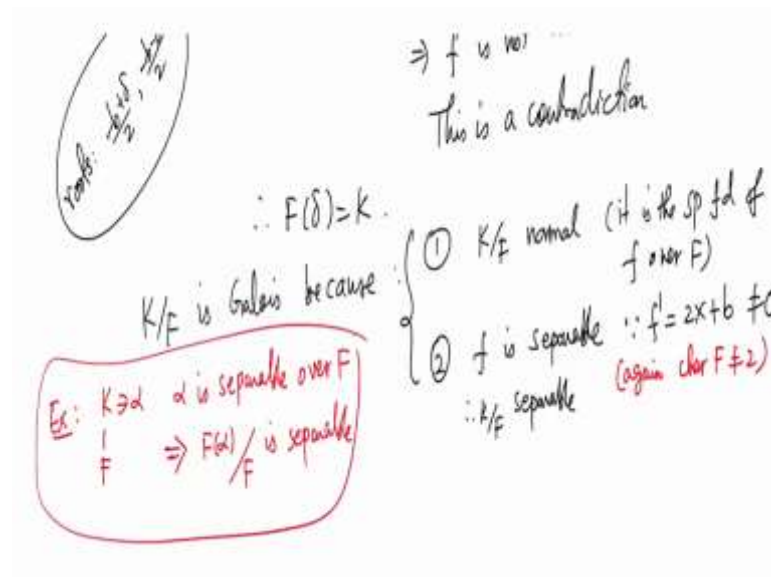 roots:
⇒ f is not ...
This is a contradiction
∴ F(δ) = K.
K/F is Galois because:
① K/F normal (it is the sp fd of
f over F)
② f is separable ∵ f' = 2x+b ≠ 0
(again char F ≠ 2)
∴ K/F separable
Ex: K∋α α is separable over F
|
F ⇒ F(α)/F is separable